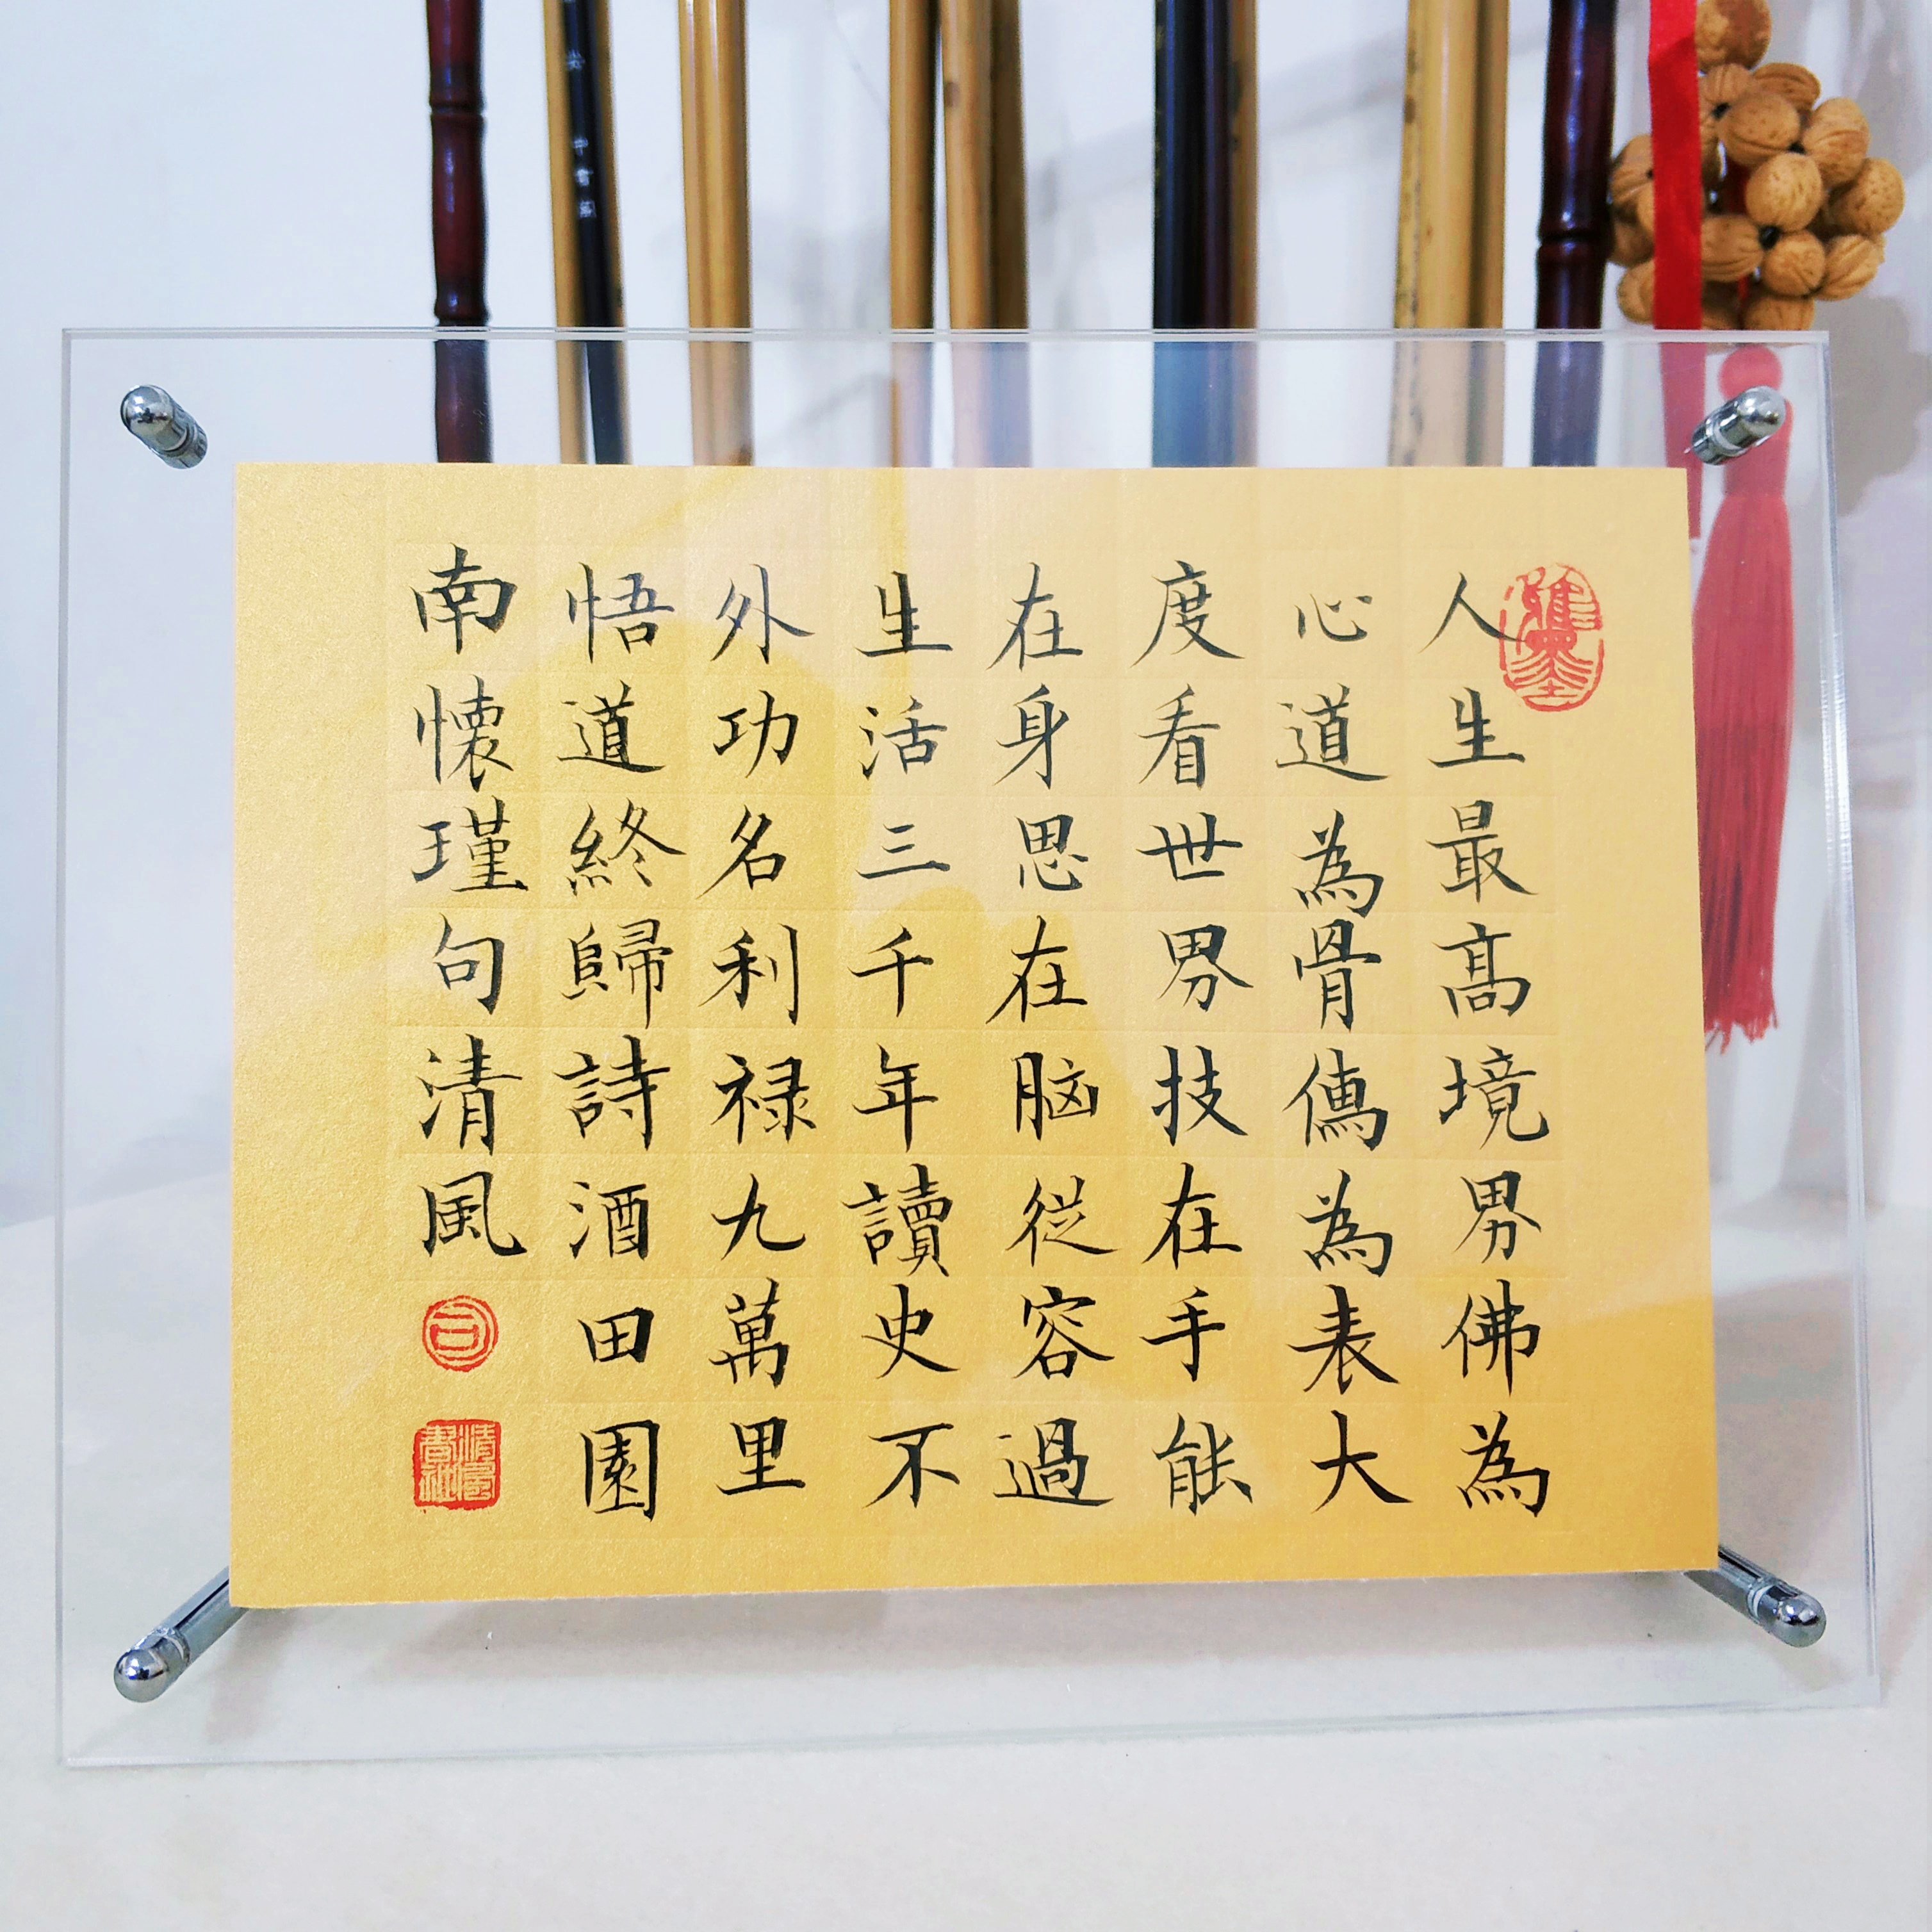 人生最高境界佛為
心道為骨儒為表大
度看世界技在手能
在身思在脑從容過
生活三千年讀史不
外功名利禄九萬里
悟道終歸詩酒田園
南懐瑾句清風